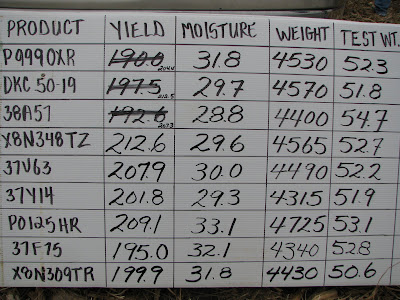 PRODUCT YIELD MOISTURE WEIGHT TEST WT.
P0990XR 190.0 31.8 4530 52.3
DKC 50-19 197.5 29.7 4570 51.8
38A57 192.6 28.8 4400 54.7
X8N348TZ 212.6 29.6 4565 52.7
37V63 207.9 30.0 4490 52.2
37Y14 201.8 29.3 4315 51.9
P0125HR 209.1 33.1 4725 53.1
37F75 195.0 32.1 4340 52.8
X8N309TR 199.9 31.8 4430 50.6